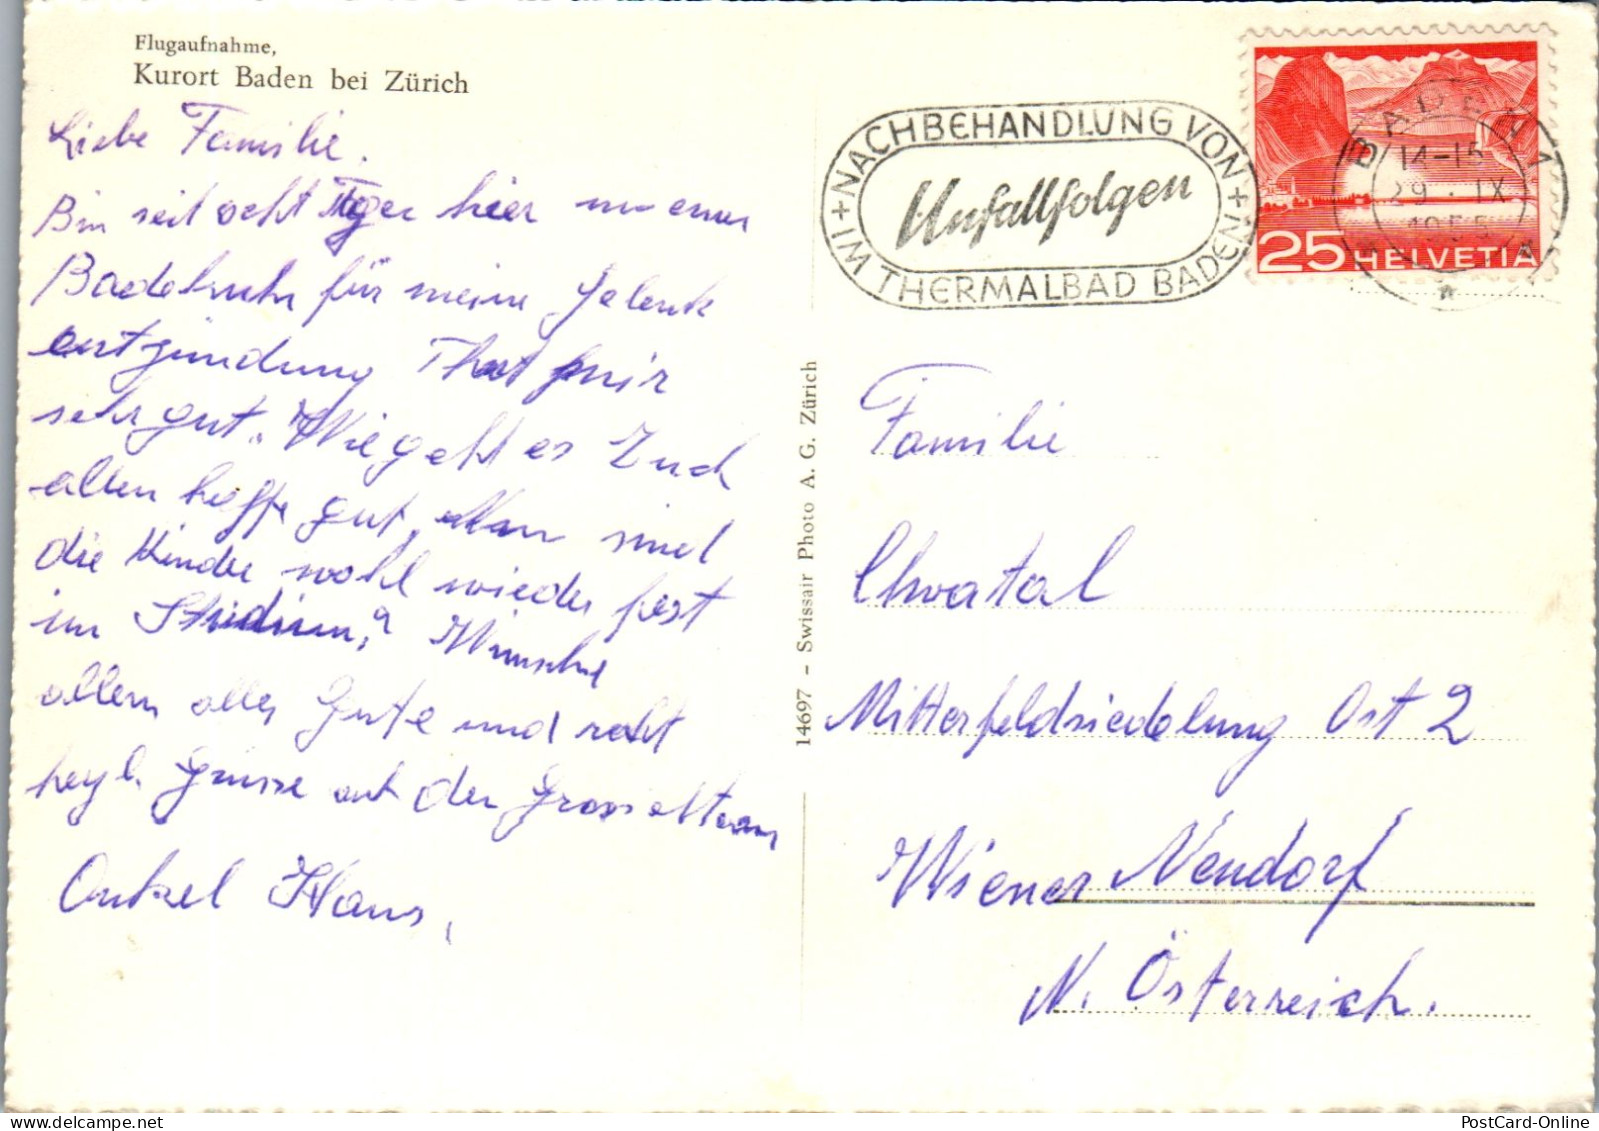 Flugaufnahme,
Kurort Baden bei Zürich
Liebe Familie.
Bin seit acht Tagen hier zu einer
Badekuhr für meine Gelenk
entzündung That mir
sehr gut. Wie geht es Euch
allen hoffe gut, Nun sind
die Kinder wohl wieder fest
im Studium? Wünsche
allen alles Gute und recht
herzl. Grüsse ant den Grosseltern
Onkel Hans,
14697 - Swissair Photo A. G. Zürich
+NACHBEHANDLUNG VON+
Unfallfolgen
IM THERMALBAD BADEN
BADEN 1
14-15
29. IX
1955
25 HELVETIA
Familie
Chvatal
Mitterfeldsiedelung Ost 2
Wiener Neudorf
N. Österreich.
PostCard-Online